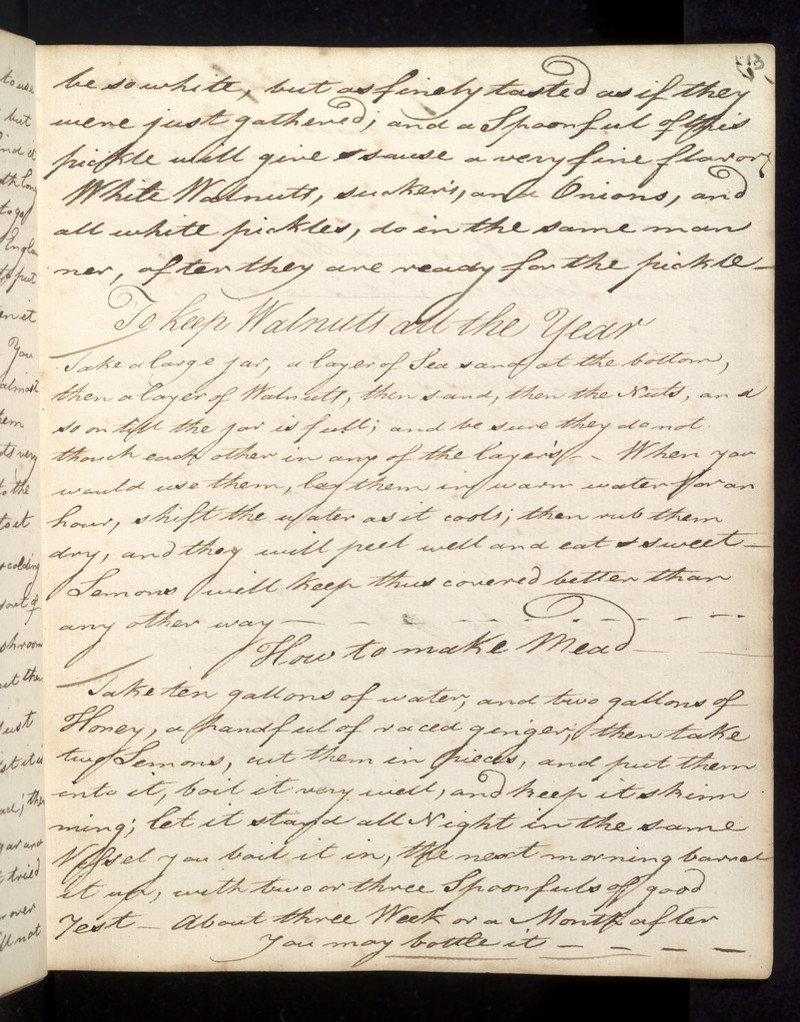 be so white, but as finely tasted as if they
were just gathered; and a Spoonful of this
pickle will give & sause a very fine flavor
White Walnuts, sucker's, and Onions, and
all white pickles, do in the same man
ner, after they are ready for the pickle —
To keep Walnuts all the Year
Take a large jar, a layer of Sea sand at the bottom,
then a layer of Walnuts, then sand, then the Nuts, and
so on till the jar is full; and be sure they do not
thouch each other in any of the layer's — - When you
would use them, lay them in warm water for an
hour, shift the water as it cools; then rub them
dry, and they will peel well and eat & sweet —
Lemons will keep thus covered better than
any other way — — — — — — — — —
How to make Mead —
Take ten gallons of water, and two gallons of
Honey, a handful of raced ginger; then take
two Lemons, cut them in pieces, and put them
into it, boil it very well, and keep it skim
ming; let it stand all Night in the same
Vessel you boil it in, the next morning barrel
it up, with two or three Spoonfuls of good
Yest — About three Week or a Month after
You may bottle it — — — — —
to use
but
and it
to go
Englan
put
en it
You
almost
very
to the
scolding
out of
shroom
ut then
just
; then
tried
over